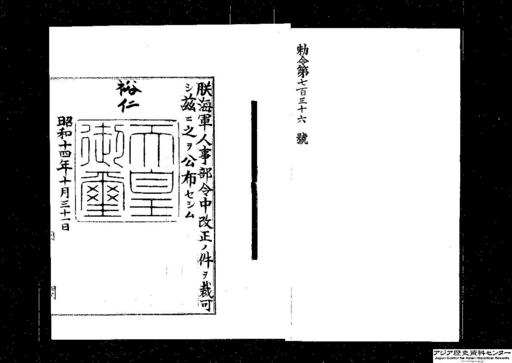 勅令第七百三十六號
朕海軍人事部令中改正ノ件ヲ裁可
シ茲ニ之ヲ公布セシム
裕仁
天皇
御璽
昭和十四年十月三十一日
アジア歴史資料センター
Japan Center for Asian Historical Records